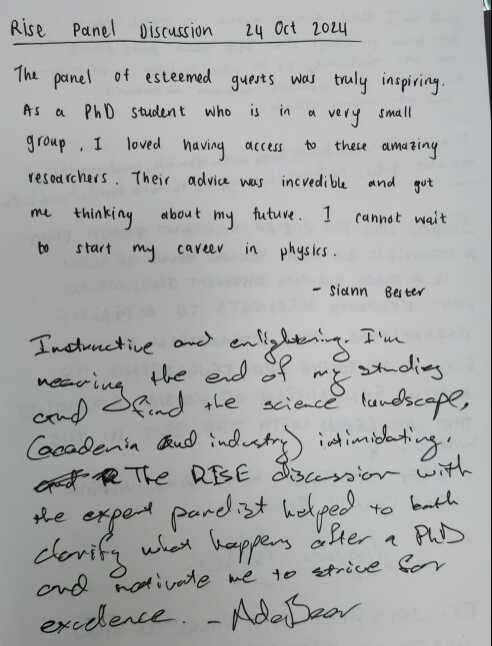 Rise Panel Discussion 24 Oct 2024
The panel of esteemed guests was truly inspiring.
As a PhD student who is in a very small
group, I loved having access to these amazing
researchers. Their advice was incredible and got
me thinking about my future. I cannot wait
to start my career in physics.
- Siann Bester
Instructive and enlightening. I'm
nearing the end of my studies
and find the science landscape,
(academia and industry) intimidating.
The RISE discussion with
the expert panelist helped to both
clarify what happens after a PhD
and motivate me to strive for
excellence. -